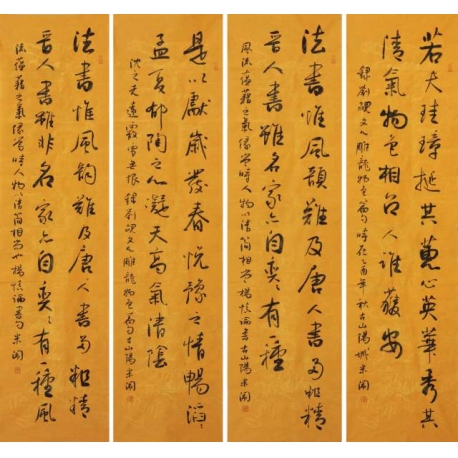 若夫珪璋挺其蕙心英華秀其
清氣物色相召人誰獲安
錄劉勰文心雕龍物色篇句時在酉年秋古山陽城米闹
法書惟風韻難及唐人書多粗糙
晉人書雖名家亦自奕々有種
風流蘊藉之氣緣當時人物以清簡相尚楊慎論書古山陽米闹
是以獻歲發春悅豫之情暢滔々
孟夏郁陶之心凝天高氣清陰
沈之志遠霰雪無垠錄劉勰文心雕龍物色篇句古山陽米闹
法書惟風韻難及唐人書多粗糙
晉人書雖非名家亦自奕々有種風
流蘊藉之氣緣當時人物以清簡相尚也楊慎論書句米闹